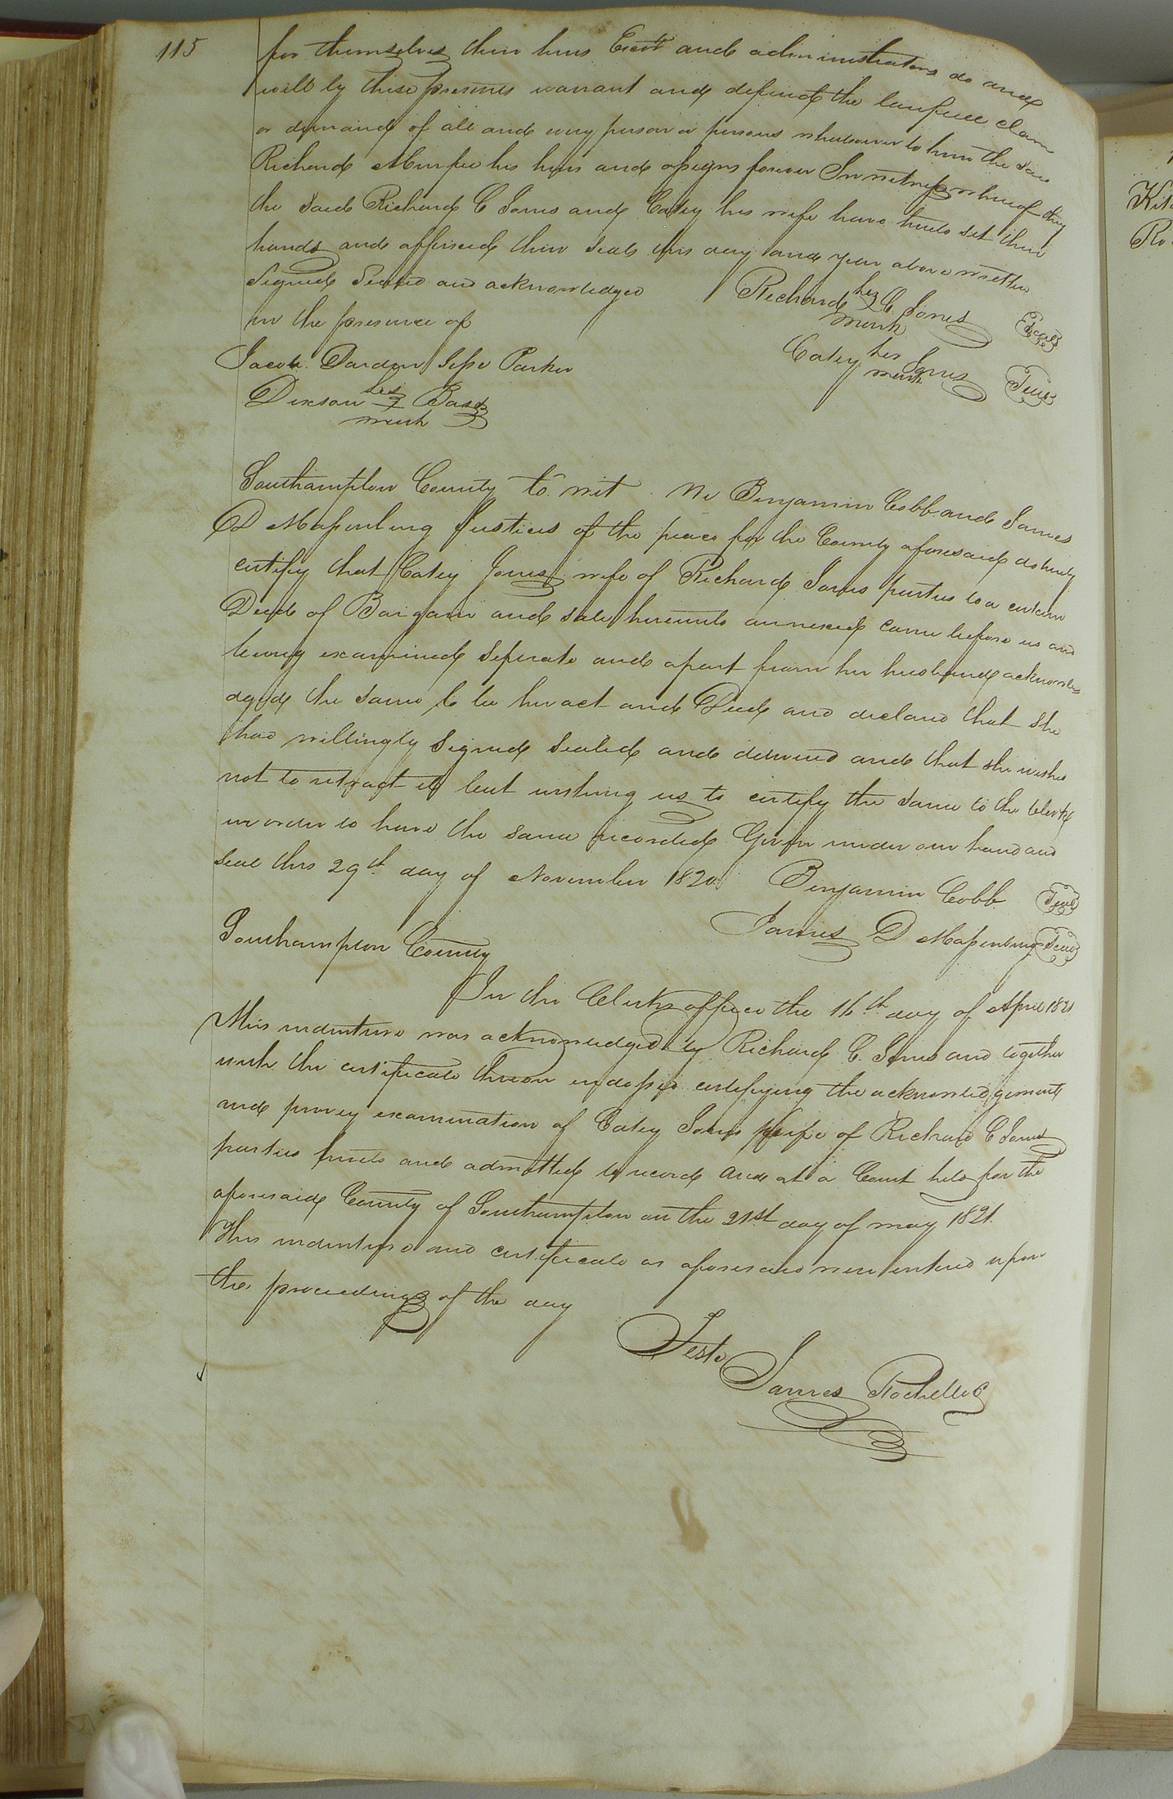 115
for themselves their heirs Exors and administrators do and
will by these presents warrant and defend the lawfull claim
or demand of all and every person or persons whatsoever to him the said
Richard Murfee his heirs and assigns forever In witness whereof they
the said Richard C Jones and Catey his wife have hereto set their
hands and affixed their seals this day and year above written
Signed Sealed and acknowledged
in the presence of
Richard his C Jones Seal
mark
Catey her Jones Seal
mark
Jacob Darden Jesse Parker
Dixson his Bass
mark
Southampton County to wit We Benjamin Cobb and James
D Massenburg Justices of the peace for the County aforesaid do hereby
certify that Catey Jones wife of Richard Jones parties to a certain
Deed of Bargain and sale hereunto annexed came before us and
being examined seperate and apart from her husband acknowle
dged the same to be her act and Deed and declared that she
had willingly signed sealed and delivered and that she wishes
not to retract it but wishing us to certify the same to the Clerk
in order to have the same recorded Given under our hand and
seal this 29th day of November 1820 Benjamin Cobb Seal
James D Massenburg Seal
Southampton County
In the Clerks office the 16th day of April 1821
This indenture was acknowledged by Richard C. Jones and together
with the certificate thereon indorsed certifying the acknowledgement
and privey examination of Catey Jones wife of Richard C Jones
parties hereto and admitted to record and at a Court held for the
aforesaid County of Southampton on the 21st day of may 1821.
This indenture and certificate as aforesaid were entered upon
the proceedings of the day
Teste
James Rochelle C